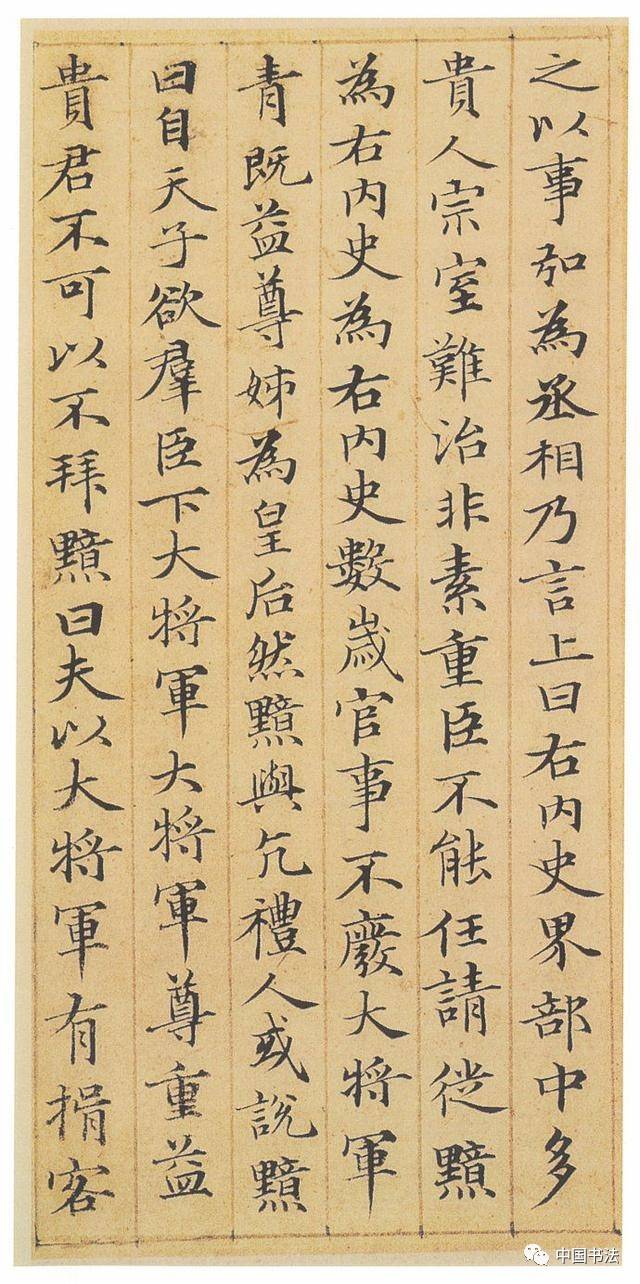 之以事弘為丞相乃言上曰右內史界部中多
貴人宗室難治非素重臣不能任請徙黯
為右內史為右內史數歲官事不廢大將軍
青既益尊姊為皇后然黯與亢禮人或說黯
曰自天子欲羣臣下大將軍大將軍尊重益
貴君不可以不拜黯曰夫以大將軍有揖客
中国书法